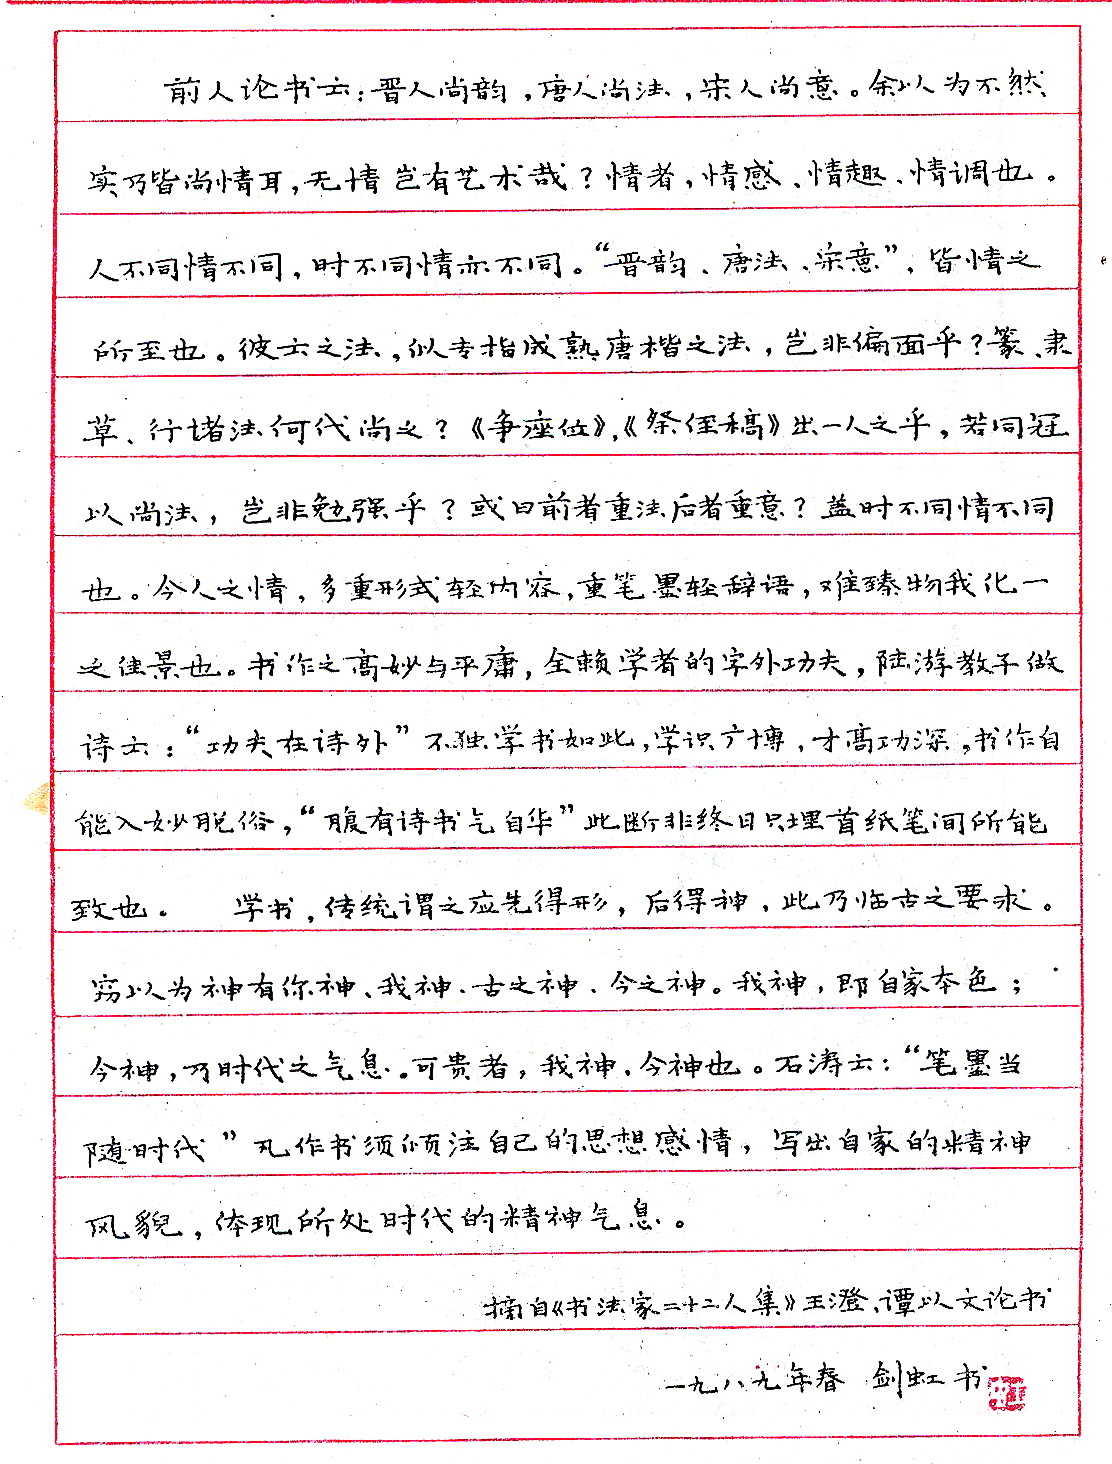 前人论书云：晋人尚韵，唐人尚法，宋人尚意。余以为不然、
实乃皆尚情耳，无情岂有艺术哉？情者，情感、情趣、情调也。
人不同情不同，时不同情亦不同。“晋韵、唐法、宋意”，皆情之
所至也。彼云之法，似专指成熟唐楷之法，岂非偏面乎？篆、隶
草、行诸法何代尚之？《争座位》，《祭侄稿》出一人之手，若同冠
以尚法，岂非勉强乎？或曰前者重法后者重意？盖时不同情不同
也。今人之情，多重形式轻内容，重笔墨轻辞语，难臻物我化一
之佳景也。书作之高妙与平庸，全赖学者的字外功夫，陆游教子做
诗云：“功夫在诗外”不独学书如此，学识广博，才高功深，书作自
能入妙脱俗，“腹有诗书气自华”此断非终日只埋首纸笔间所能
致也。　　学书，传统谓之应先得形，后得神，此乃临古之要求。
窃以为神有你神、我神、古之神、今之神。我神，即自家本色；
今神，乃时代之气息。可贵者，我神，今神也。石涛云：“笔墨当
随时代”凡作书须倾注自己的思想感情，写出自家的精神
风貌，体现所处时代的精神气息。
摘自《书法家二十二人集》王澄、谭以文论书
一九八九年春　剑虹书